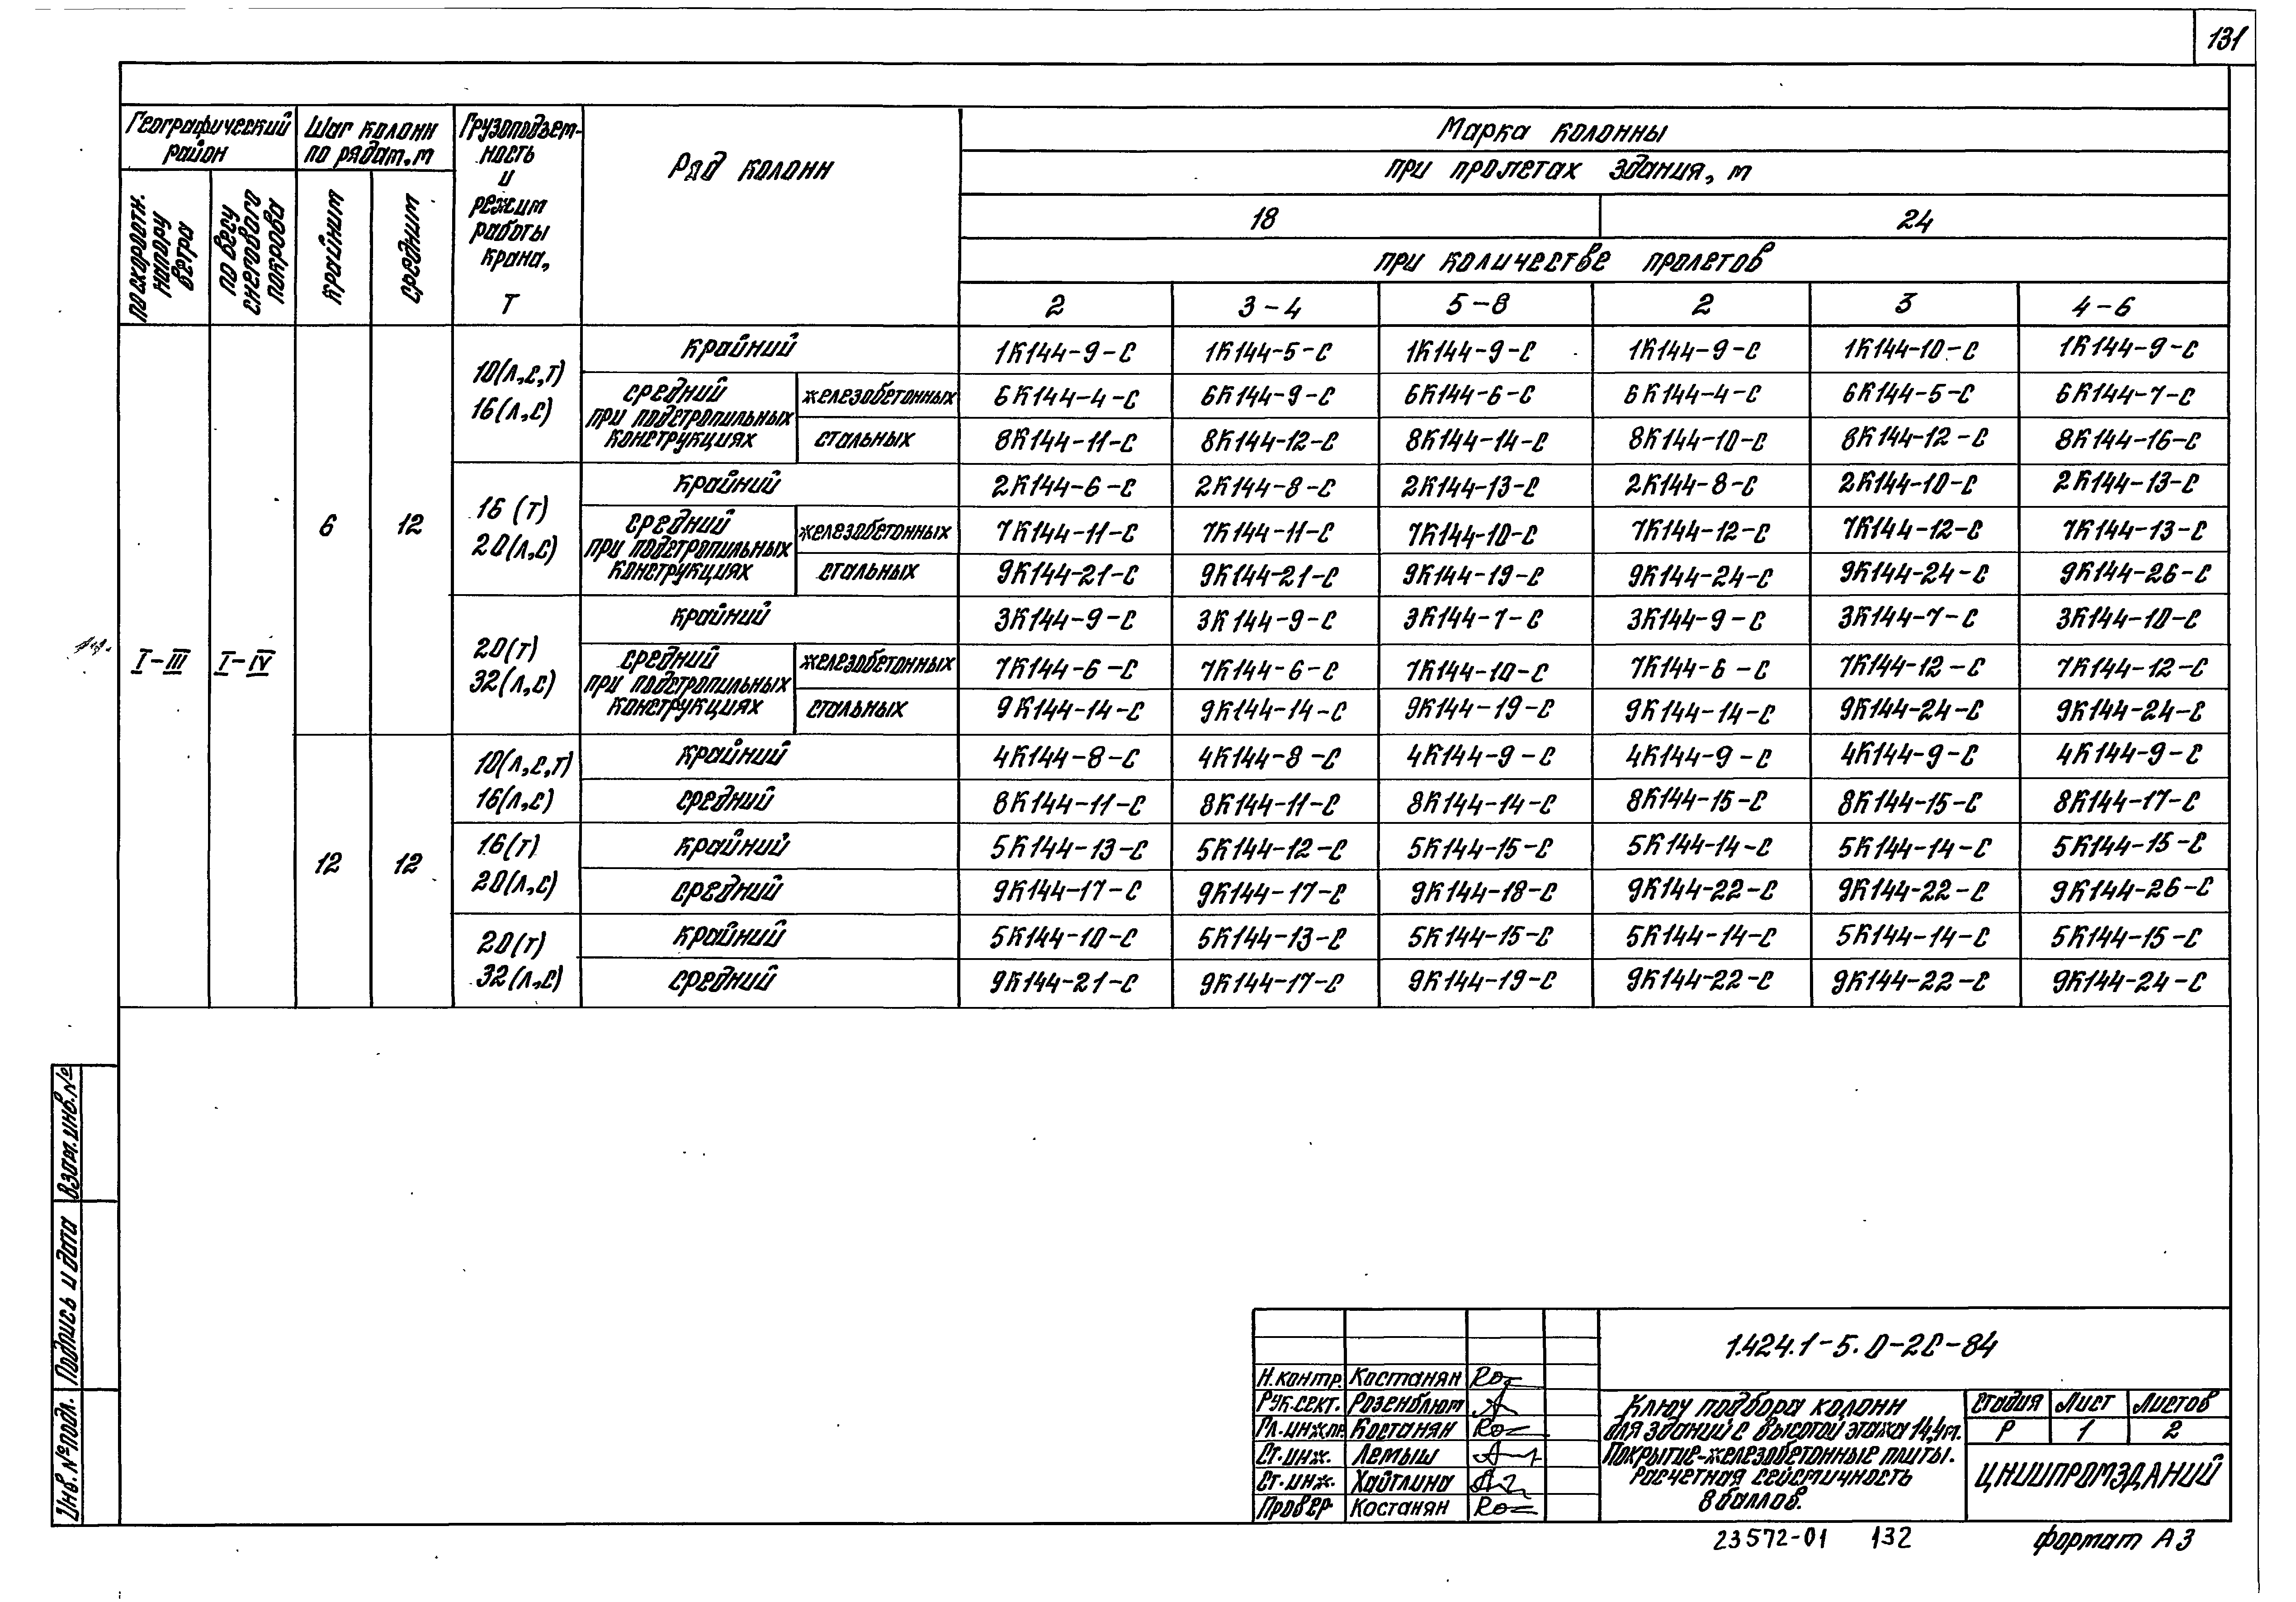 131
Географический район
Шаг колонн по рядам, м
Грузоподъем-ность и режим работы крана, т
Ряд колонн
Марка колонны
при пролетах здания, м
по скоростн. напору ветра
по весу снегового покрова
крайним
средним
18
24
при количестве пролетов
2
3-4
5-8
2
3
4-6
I-III
I-IV
6
12
10(л,с,т)
16(л,с)
крайний 1К144-9-С 1К144-5-С 1К144-9-С 1К144-9-С 1К144-10-С 1К144-9-С
средний при подстропильных конструкциях
железобетонных 6К144-4-С 6К144-9-С 6К144-6-С 6К144-4-С 6К144-5-С 6К144-7-С
стальных 8К144-11-С 8К144-12-С 8К144-14-С 8К144-10-С 8К144-12-С 8К144-16-С
16 (т)
20(л,с)
крайний 2К144-6-С 2К144-8-С 2К144-13-С 2К144-8-С 2К144-10-С 2К144-13-С
средний при подстропильных конструкциях
железобетонных 7К144-11-С 7К144-11-С 7К144-10-С 7К144-12-С 7К144-12-С 7К144-13-С
стальных 9К144-21-С 9К144-21-С 9К144-19-С 9К144-24-С 9К144-24-С 9К144-26-С
20(т)
32(л,с)
крайний 3К144-9-С 3К144-9-С 3К144-7-С 3К144-9-С 3К144-7-С 3К144-10-С
средний при подстропильных конструкциях
железобетонных 7К144-6-С 7К144-6-С 7К144-10-С 7К144-6-С 7К144-12-С 7К144-12-С
стальных 9К144-14-С 9К144-14-С 9К144-19-С 9К144-14-С 9К144-24-С 9К144-24-С
12
12
10(л,с,т)
16(л,с)
крайний 4К144-8-С 4К144-8-С 4К144-9-С 4К144-9-С 4К144-9-С 4К144-9-С
средний 8К144-11-С 8К144-11-С 8К144-14-С 8К144-15-С 8К144-15-С 8К144-17-С
16(т)
20(л,с)
крайний 5К144-13-С 5К144-12-С 5К144-15-С 5К144-14-С 5К144-14-С 5К144-15-С
средний 9К144-17-С 9К144-17-С 9К144-18-С 9К144-22-С 9К144-22-С 9К144-26-С
20(т)
32(л,с)
крайний 5К144-10-С 5К144-13-С 5К144-15-С 5К144-14-С 5К144-14-С 5К144-15-С
средний 9К144-21-С 9К144-17-С 9К144-19-С 9К144-22-С 9К144-22-С 9К144-24-С
Взам.инв.№
Подпись и дата
Инв.№подл.
1.424.1-5.0-2С-84
Н.контр. Костанян
Рук.сект. Розенблюм
Гл.инж.пр. Костанян
Ст.инж. Лемыш
Ст.инж. Хайтлина
Провер Костанян
Ключ подбора колонн
для зданий с высотой этажа 14,4м.
Покрытие-железобетонные плиты.
Расчетная сейсмичность
8 баллов.
Стадия Лист Листов
Р 1 2
ЦНИИПРОМЗДАНИЙ
23572-01 132
формат А3